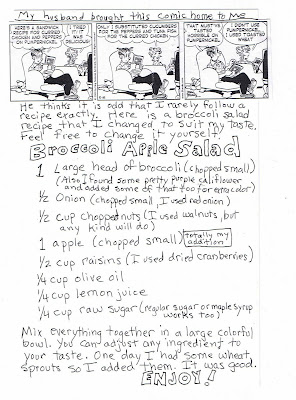 My husband brought this comic home to me
HERE'S A SANDWICH
RECIPE FOR CURRIED
CHICKEN AND PEPPERS
ON PUMPERNICKEL
I TRIED
IT. IT
WAS
DELICIOUS.
ONLY I SUBSTITUTED CUCUMBERS
FOR THE PEPPERS AND TUNA FISH
FOR THE CURRIED CHICKEN
THAT MUST'VE
TASTED
HORRIBLE ON
PUMPERNICKEL
I DIDN'T USE
PUMPERNICKEL.
I USED TOASTED
WHEAT
He thinks it is odd that I rarely follow a
recipe exactly. Here is a broccoli salad
recipe that I changed to suit my taste.
Feel free to change it yourself.
Broccoli Apple Salad
1 Large head of broccoli (chopped small)
(Also I found some pretty purple califlower
and added some of that too for extra color)
1/2 Onion (chopped small, I used red onion)
1/2 cup chopped nuts (I used walnuts, but
any kind will do)
1 apple (chopped small) totally my
addition!
1/2 cup raisins (I used dried cranberries)
1/4 cup olive oil
1/4 cup lemon juice
1/4 cup raw sugar (regular sugar or maple syrup
works too)
Mix everything together in a large colorful
bowl. You can adjust any ingredient to
your taste. One day I had some wheat
sprouts so I added them. It was good.
ENJOY!